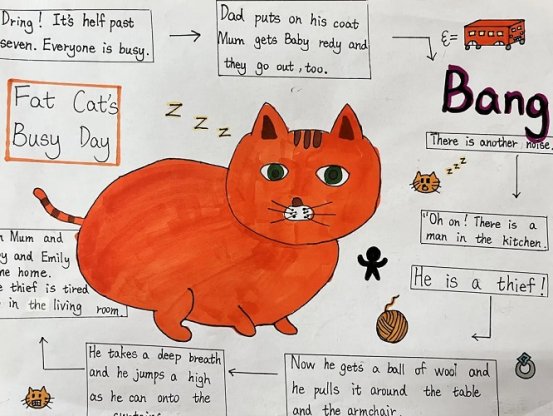 Dring! It's helf past
seven. Everyone is busy.
Dad puts on his coat
Mum gets Baby redy and
they go out, too.
Fat Cat's
Busy Day
z z z
Bang
There is another noise.
z z z
"Oh on! There is a
man in the kitchen.
He is a thief!
Now he gets a ball of wool and
he pulls it around the table
and the armchair.
He takes a deep breath
and he jumps a high
as he can onto the
Mum and
and Emily
home.
thief is tired
in the living room.